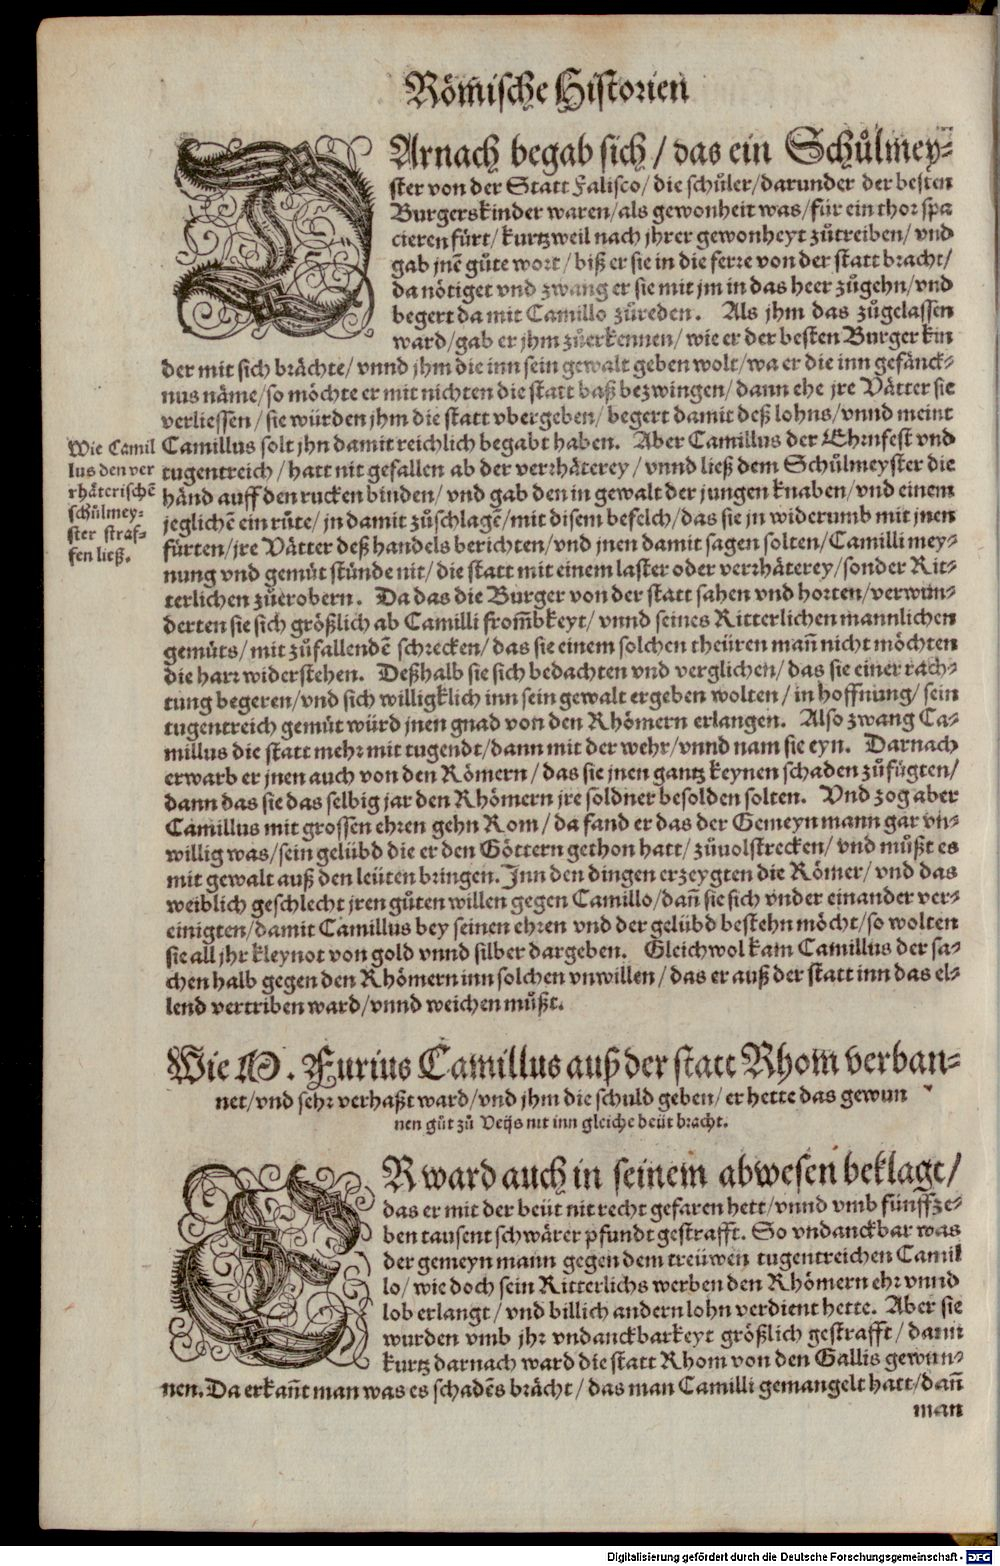 Römische Historien
DArnach begab sich / das ein Schůlmey-
ster von der Statt Falisco / die schůler / darunder der besten
Burgerskinder waren / als gewonheit was / für ein thor spa
cieren fürt / kurtzweil nach jhrer gewonheyt zůtreiben / vnd
gab jnē gůte wort / biß er sie in die ferre von der statt bracht /
da nötiget vnd zwang er sie mit jm in das heer zůgehn / vnd
begert da mit Camillo zůreden. Als jhm das zůgelassen
ward / gab er jhm zůerkennen / wie er der besten Burger kin
der mit sich brächte / vnnd jhm die inn sein gewalt geben wolt / wa er die inn gefänck-
nus näme / so möchte er mit nichten die statt baß bezwingen / dann ehe jre Vätter sie
verliessen / sie würden jhm die statt vbergeben / begert damit deß lohns / vnnd meint
Camillus solt jhn damit reichlich begabt haben. Aber Camillus der Ehrnfest vnd
tugentreich / hatt nit gefallen ab der verrhäterey / vnnd ließ dem Schůlmeyster die
händ auff den rucken binden / vnd gab den in gewalt der jungen knaben / vnd einem
jeglichē ein růte / jn damit zůschlagē / mit disem befelch / das sie jn widerumb mit jnen
fürten / jre Vätter deß handels berichten / vnd jnen damit sagen solten / Camilli mey-
nung vnd gemüt stünde nit / die statt mit einem laster oder verrhäterey / sonder Rit-
terlichen zůerobern. Da das die Burger von der statt sahen vnd horten / verwun-
derten sie sich größlich ab Camilli from̄bkeyt / vnnd seines Ritterlichen mannlichen
gemüts / mit zůfallendē schrecken / das sie einem solchen theüren man̄ nicht möchten
die harr widerstehen. Deßhalb sie sich bedachten vnd verglichen / das sie einer rach-
tung begeren / vnd sich williglich inn sein gewalt ergeben wolten / in hoffnung / sein
tugentreich gemüt würd jnen gnad von den Rhömern erlangen. Also zwang Ca-
millus die statt mehr mit tugendt / dann mit der wehr / vnnd nam sie eyn. Darnach
erwarb er jnen auch von den Römern / das sie jnen gantz keynen schaden zůfügten /
dann das sie das selbig jar den Rhömern jre soldner besolden solten. Vnd zog aber
Camillus mit grossen ehren gehn Rom / da fand er das der Gemeyn mann gar vn-
willig was / sein gelübd die er den Göttern gethon hatt / zůuolstrecken / vnd můßt es
mit gewalt auß den leüten bringen. Inn den dingen erzeygten die Römer / vnd das
weiblich geschlecht jren gůten willen gegen Camillo / dan̄ sie sich vnder einander ver-
einigten / damit Camillus bey seinen ehren vnd der gelübd bestehn möcht / so wolten
sie all jhr kleynot von gold vnnd silber dargeben. Gleichwol kam Camillus der sa-
chen halb gegen den Rhömern inn solchen vnwillen / das er auß der statt inn das el-
lend vertriben ward / vnnd weichen můßt.
Wie Camil
lus den ver
rhäterischē
schůlmey-
ster straf-
fen ließ.
Wie M. Furius Camillus auß der statt Rhom verban-
net / vnd sehr verhaßt ward / vnd jhm die schuld geben / er hette das gewun
nen gůt zů Veijs nit inn gleiche beüt bracht.
ER ward auch in seinem abwesen beklagt /
das er mit der beüt nit recht gefaren hett / vnnd vmb fünffze-
hen tausent schwärer pfundt gestrafft. So vndanckbar was
der gemeyn mann gegen dem treüwen tugentreichen Camil
lo / wie doch sein Ritterlichs werben den Rhömern ehr vnnd
lob erlangt / vnd billich andern lohn verdient hette. Aber sie
wurden vmb jhr vndanckbarkeyt größlich gestrafft / dann
kurtz darnach ward die statt Rhom von den Gallis gewun-
nen. Da erkan̄t man was es schadēs brächt / das man Camilli gemangelt hatt / dan̄
man
Digitalisierung gefördert durch die Deutsche Forschungsgemeinschaft - DFG